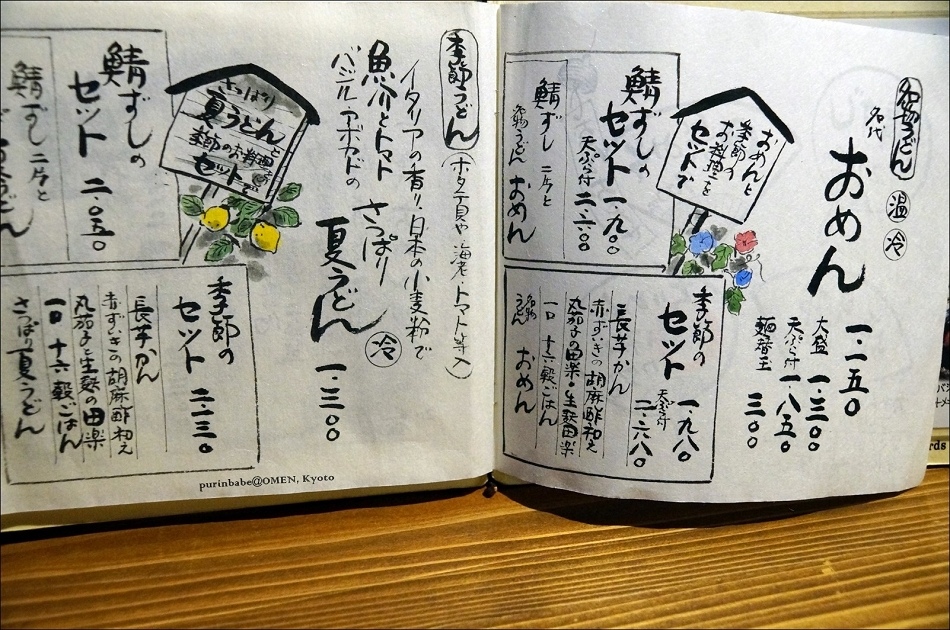 名物うどん 温 冷
名代 おめん 一、一五〇
大盛 一、三〇〇
天ぷら付 一、八五〇
麺替玉 三〇〇
おめんと
季節の
お料理を
セットで
鯖ずしの
セット 一、九〇
天ぷら付 二、六〇
鯖ずし 二片と
名物うどん おめん
季節の
セット 一、九八〇
天ぷら付 二、六八〇
長芋かん
赤ずいきの胡麻酢和え
丸茄子の田楽・生麩田楽
一口 十六穀ごはん
名物うどん おめん
季節うどん (ホタテ貝や海老・トマト等入)
イタリアの香り、日本の小麦粉で
魚介とトマト さっぱり
バジルアボカドの 夏うどん 冷 一、三〇〇
さっぱり
夏うどん
季節のお料理を
セットで
鯖ずしの
セット 二、〇五〇
鯖ずし 二片と
季節の
セット 二、一三〇
長芋かん
赤ずいきの胡麻酢和え
丸茄子と生麩の田楽
一口 十六穀ごはん
さっぱり夏うどん
purinbabe@OMEN, Kyoto